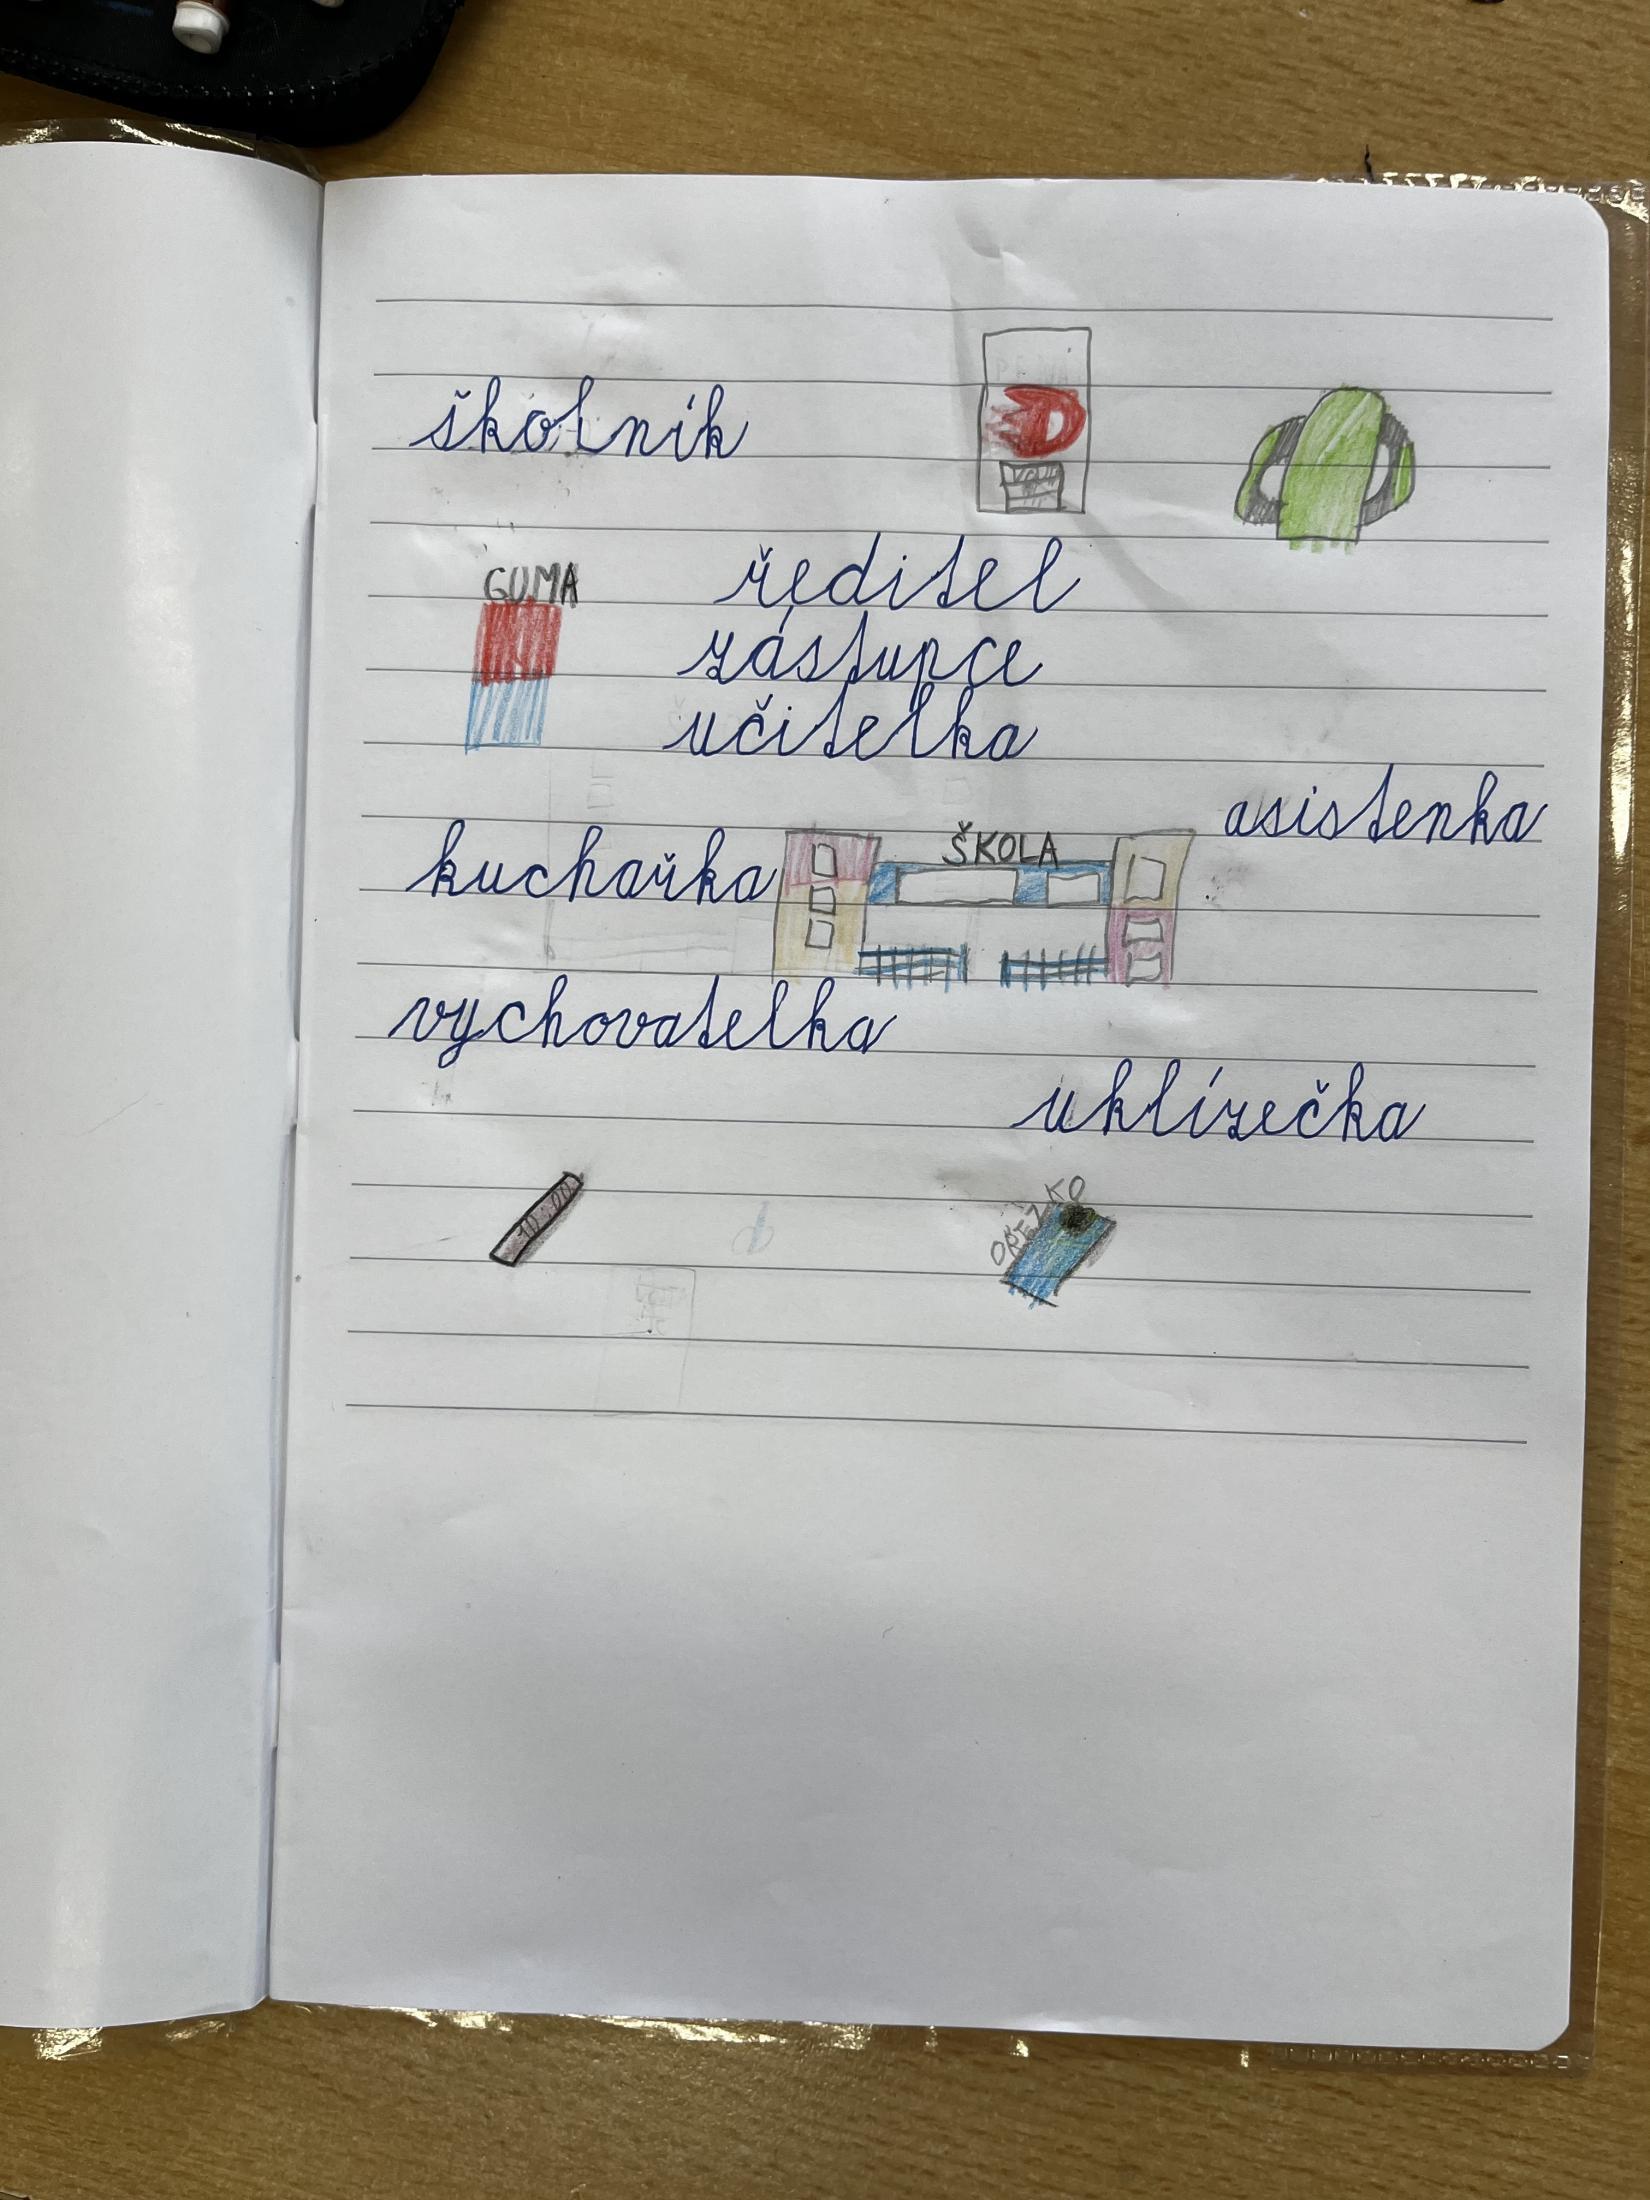 školník
GUMA
ředitel
zástupce
učitelka
asistenka
kuchařka
ŠKOLA
vychovatelka
uklízečka
OŘEZKO